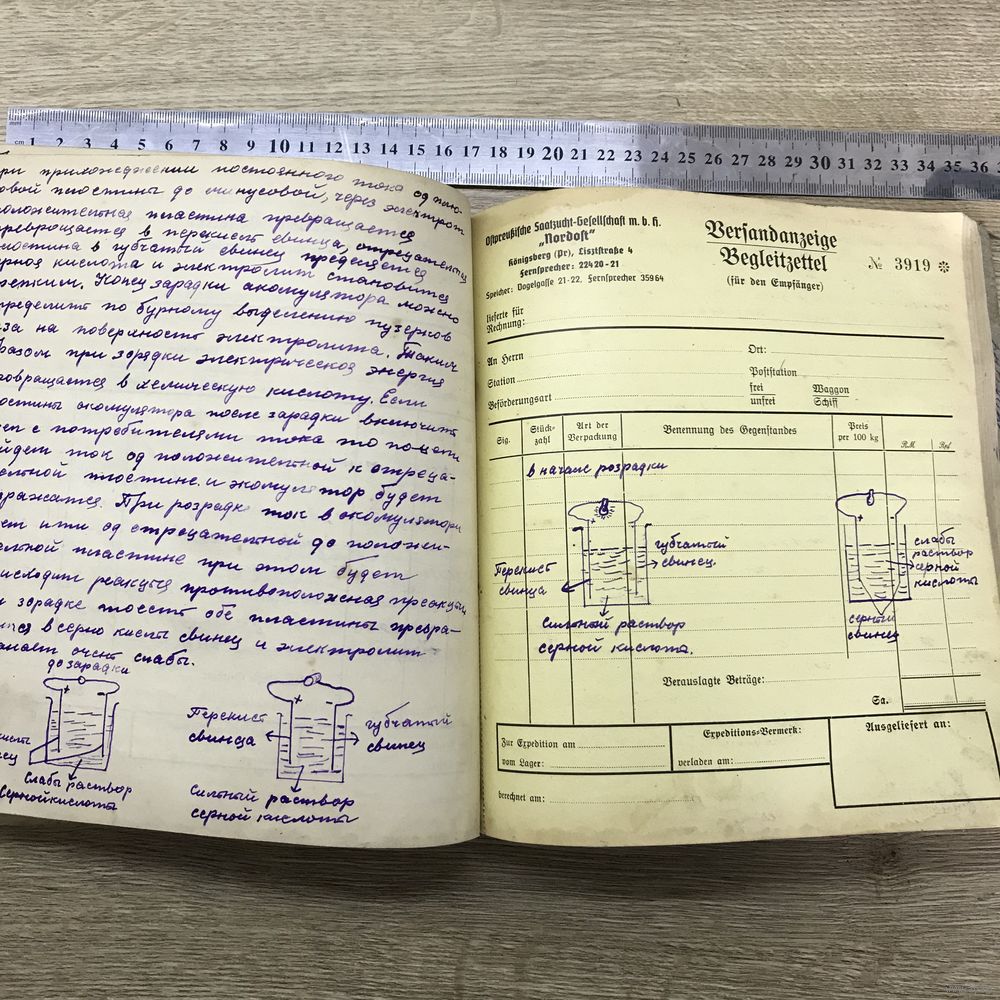 mm
cm 1 2 3 4 5 6 7 8 9 10 11 12 13 14 15 16 17 18 19 20 21 22 23 24 25 26 27 28 29 30 31 32 33 34 35 36
ри приложеджении постоянного тока од плю-
овой пластины до минусовой, через электрол
положителная пластина превращается
ревращается в перекист свинца, отрецателная
пластина в губчатый свинец
ерная кислота и электролит становится
репким. Конец зарадки акамулятора можно
пределит по бурному выделению пузерков
аза на поверхность электролита. Таким
бразом при зорядки электрическоя энергия
ровращается в хемическую кислоту. Если
ластины окомулятора после зарадки включит
с потребителями тока то
йдет ток од положителной к отреца-
елтной пластине, и экомулятор будет
зражатся. При розрадке ток в окомуляторе
ет итти од отрецателной до положи-
елной пластине при этом будет
исходит реакцыя противоположная
зорадке тоесть обе пластины превра-
в серно кислы свинец и электролит
очент слабы.
до зарадки
+ -
Слабы раствор
серной кислоты
+ -
Перекист
свинца
губчатый
свинец
Силтный раствор
серной кислоты
Ostpreußische Saatzucht-Gesellschaft m. b. H.
„Nordost"
Königsberg (Pr), Lisztstraße 4
Fernsprecher: 22420-21
Speicher: Vogelgasse 21-22, Fernsprecher 35964
Versandanzeige
Begleitzettel
(für den Empfänger)
№ 3919 ✻
lieferte für
Rechnung:
An Herrn
Ort:
Station
Poststation
Beförderungsart
frei
unfrei
Waggon
Schiff
Sig.
Stück-
zahl
Art der
Verpackung
Benennung des Gegenstandes
Preis
per 100 kg
RM
Rpf
в начале розрадки
+ -
Перекист
свинца
губчатый
свинец.
Силтный раствор
серной кислота.
+ -
слабы
раствор
серной
кислоты
серный
свинец
Verauslagte Beträge:
Sa.
Zur Expedition am
vom Lager:
Expeditions-Vermerk:
verladen am:
Ausgeliefert an:
berechnet am: